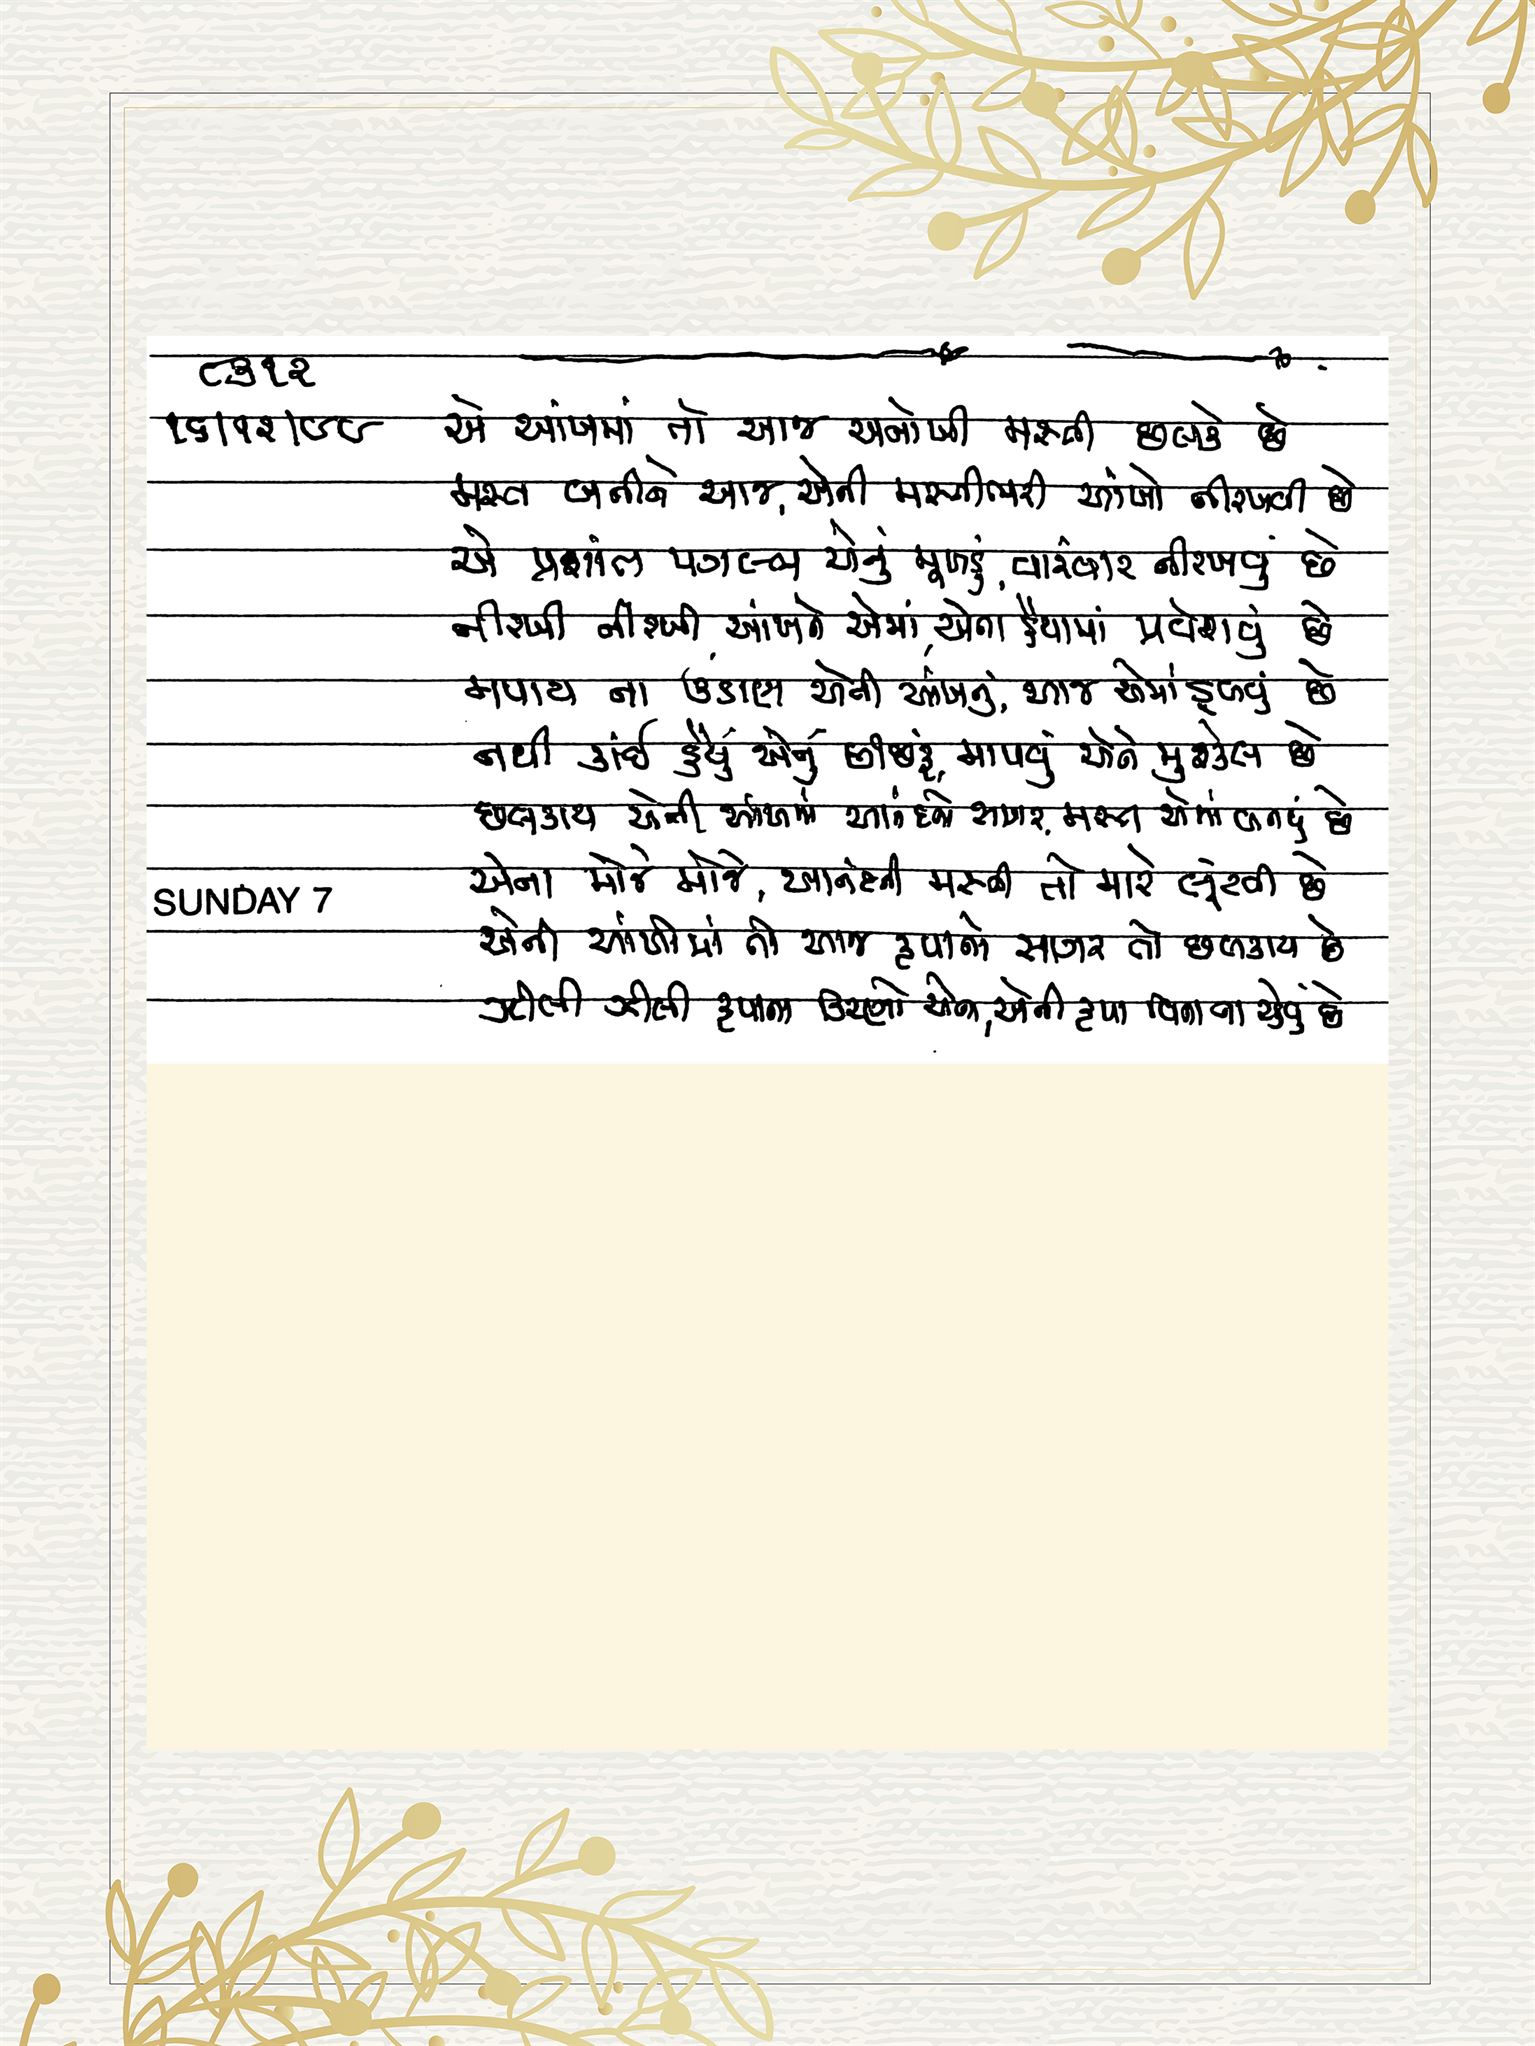 ૮૩૧૨
૧૬|૧૨|૯૯ એ આંખમાં તો આજ અનોખી મસ્તી છલકે છે
મસ્ત બનીને આજ, એની મસ્તીભરી આંખો નીરખવી છે
એ પ્રશાંત એનું મૂખડું, વારંવાર નીરખવું છે
નીરખી નીરખી, આંખને એમાં, એના હૈયામાં પ્રવેશવું છે
મપાય ના ઉંડાણ એની આંખનું, આજ એમાં ડૂબવું છે
નથી કાંઈ હૈયું એનું છીછરૂં, માપવું એને મુશ્કેલ છે
છલકાય એની આંખમાં આનંદનો સાગર, મસ્ત એમાં બનવું છે
SUNDAY 7 એના મોજે મોજે, આનંદની મસ્તી તો મારે લૂંટવી છે
એની આંખોમાં તો આજ કૃપાનો સાગર તો છલકાય છે
ઝીલી ઝીલી કૃપાના કિરણો એના, એની કૃપા વિના ના રહેવું છે